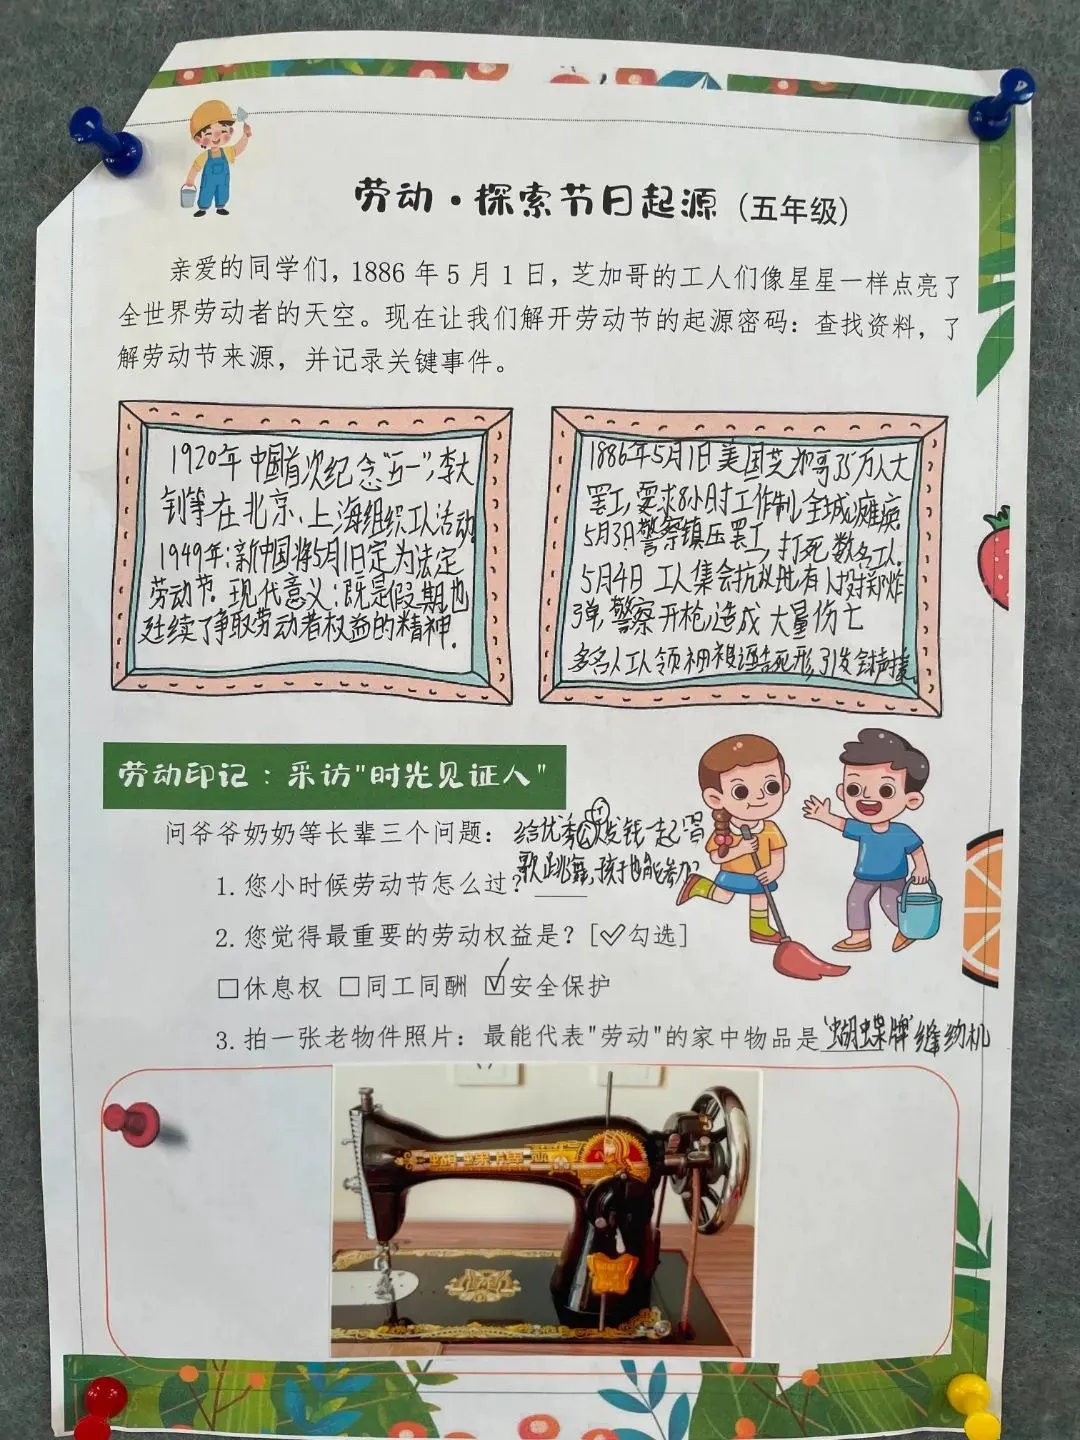 劳动·探索节日起源（五年级）
亲爱的同学们，1886年5月1日，芝加哥的工人们像星星一样点亮了
全世界劳动者的天空。现在让我们解开劳动节的起源密码：查找资料，了
解劳动节来源，并记录关键事件。
1920年 中国首次纪念"五一"，李大
钊等在北京、上海组织工人活动
1949年：新中国将5月1日定为法定
劳动节。现代意义：既是假期也
延续了争取劳动者权益的精神。
1886年5月1日美国芝加哥35万人大
罢工，要求8小时工作制，全城瘫痪
5月3日警察镇压罢工，打死数名工人
5月4日 工人集会抗议时有人投掷炸
弹，警察开枪，造成大量伤亡
多名工人领袖被诬告死刑，引发全球声援。
劳动印记：采访"时光见证人"
问爷爷奶奶等长辈三个问题：
给优秀工人发钱一起唱
歌跳舞，孩子也能参加
1.您小时候劳动节怎么过？
2.您觉得最重要的劳动权益是？[✓勾选]
□休息权 □同工同酬 ☑安全保护
3.拍一张老物件照片：最能代表"劳动"的家中物品是"蝴蝶牌"缝纫机
蝴蝶牌